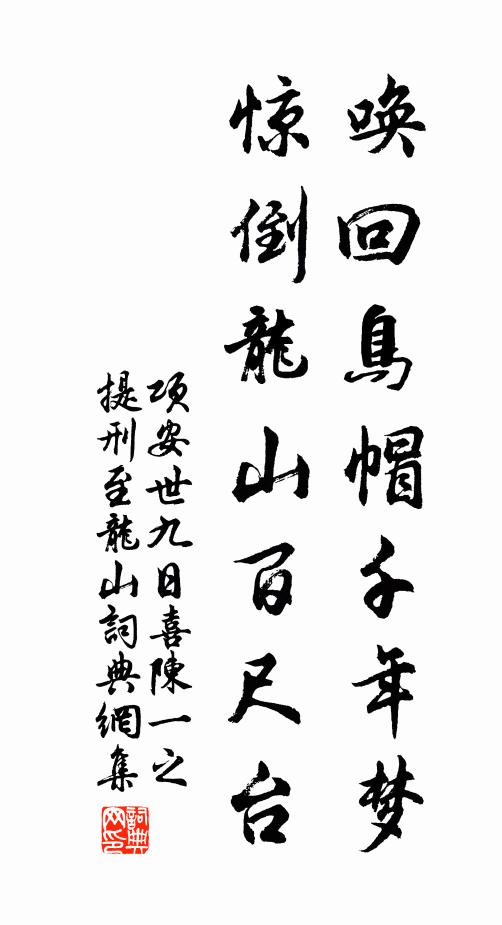 唤回乌帽千年梦
惊倒龍山百尺台
项安世九日喜陳一之
提刑至龍山詞典網集
詞典
网印